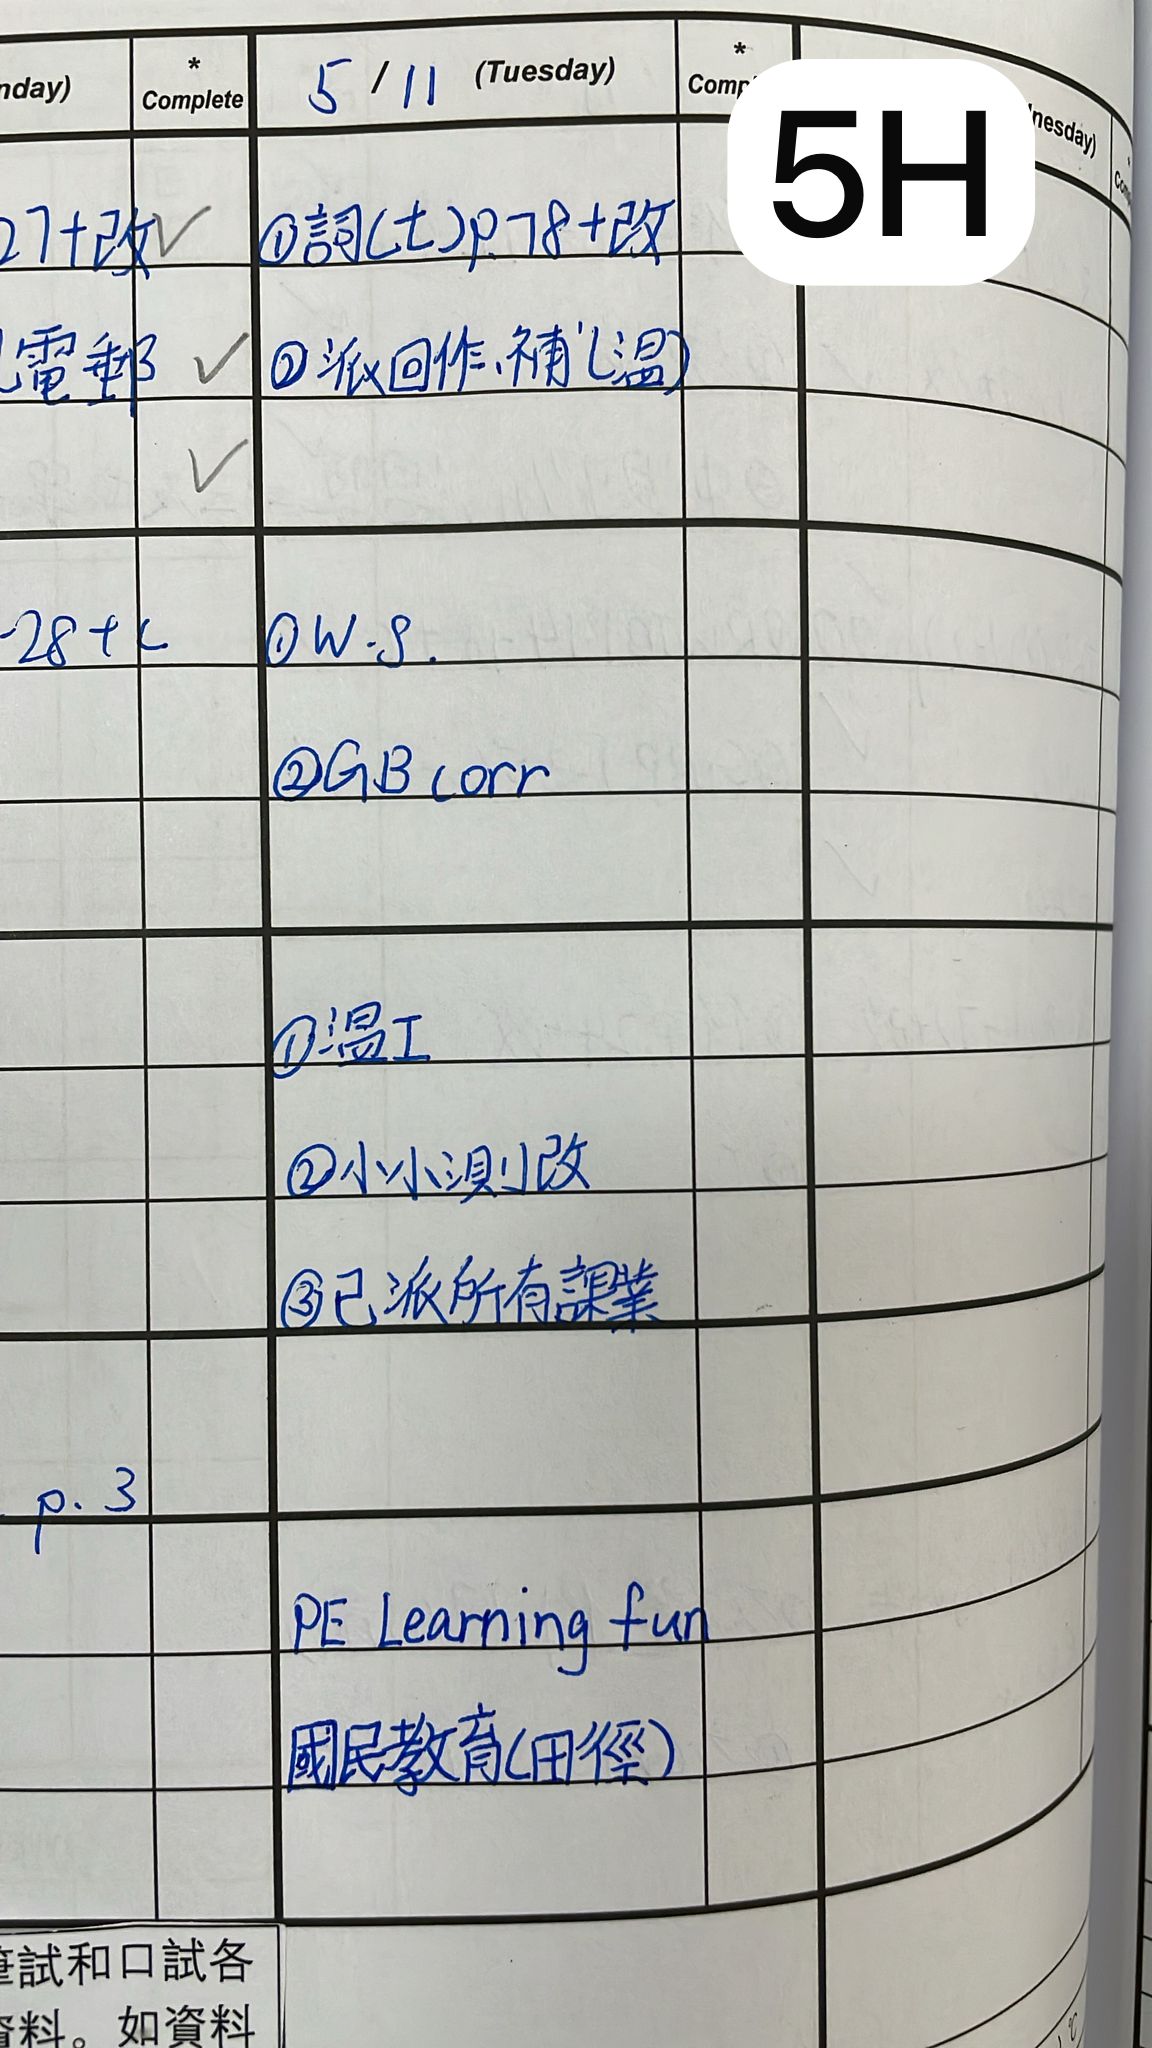 nday)
*
Complete
5/11 (Tuesday)
*
Comp
5H
nesday)
27+改
①詞(七)p.78+改
電郵
②派回作、補(溫)
-28+c
①W.S.
②GB corr
①溫工
②小小測改
③已派所有課業
p.3
PE Learning fun
國民教育(田徑)
筆試和口試各
資料。如資料
℃